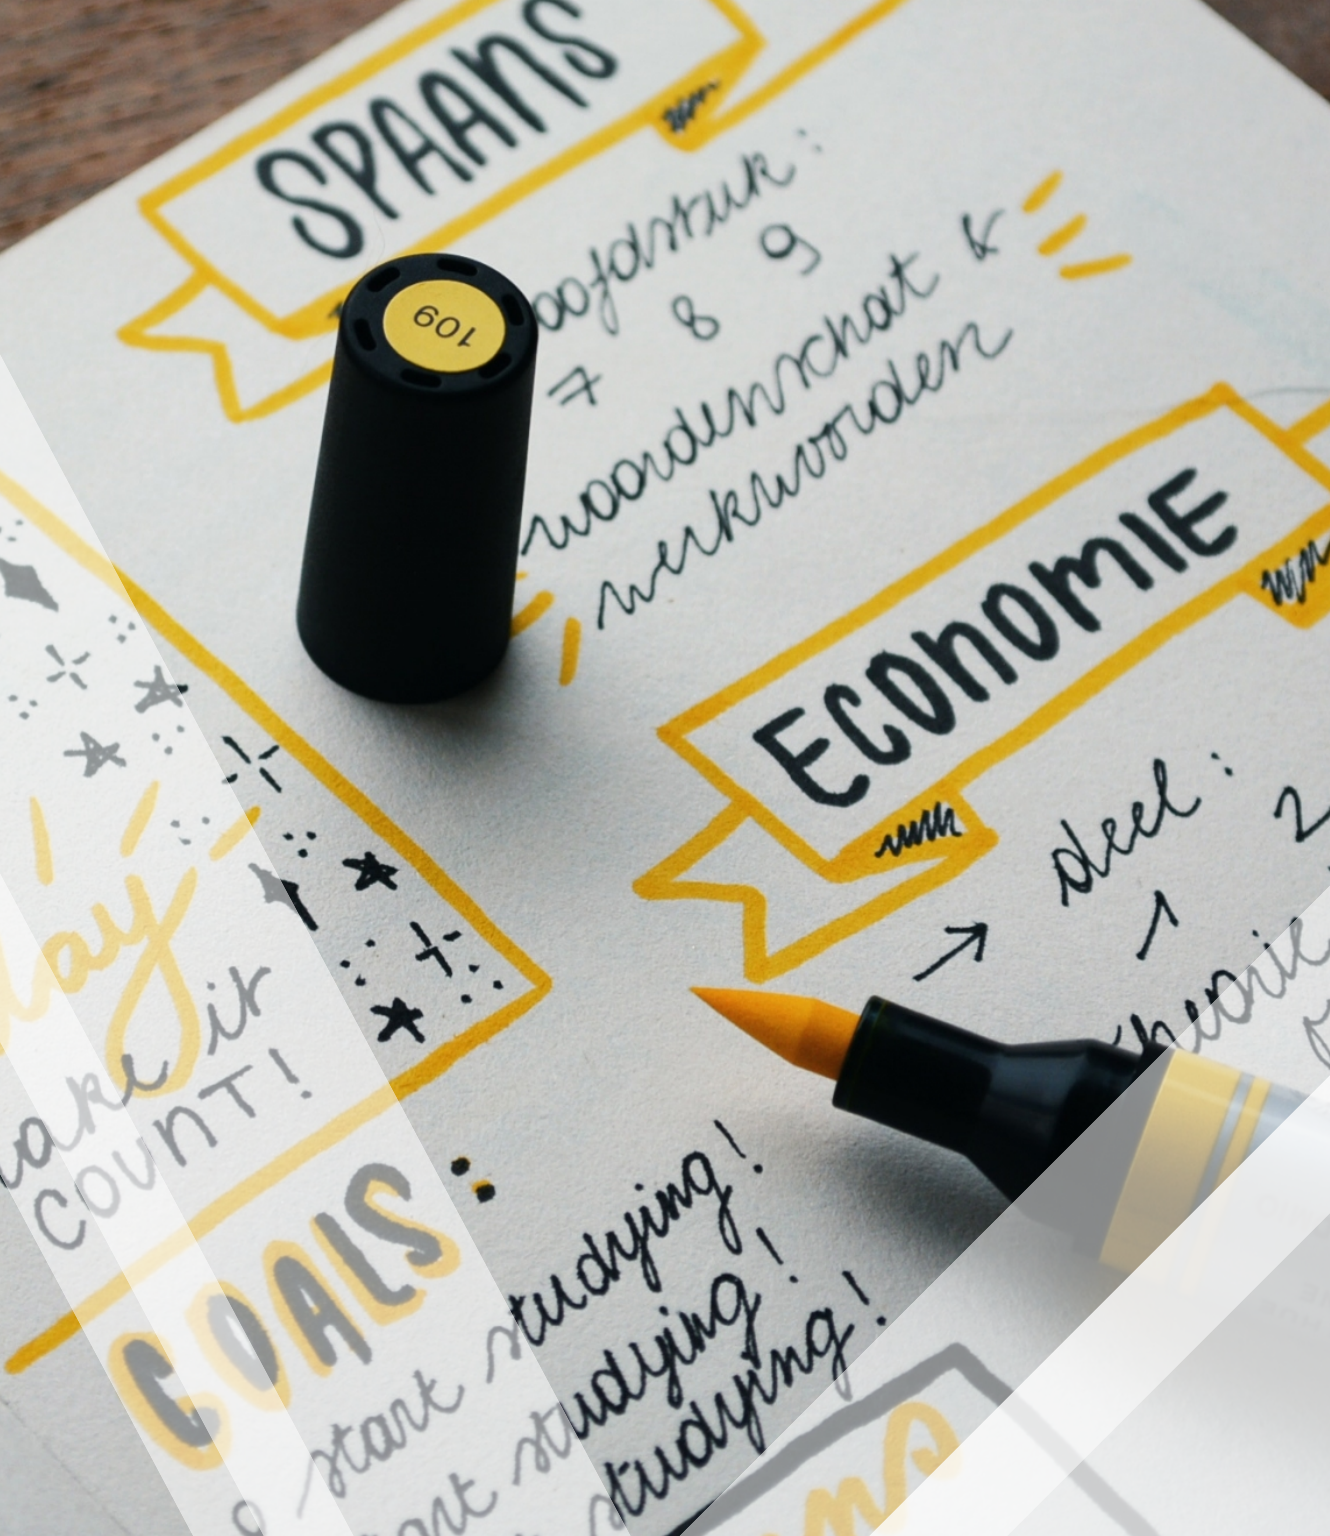 SPAANS
hoofdstuk:
7 8 9
woordenschat &
werkwoorden
109
ECONOMIE
deel:
1 2
theorie
day
make it
COUNT!
GOALS:
start studying!
start studying!
studying!